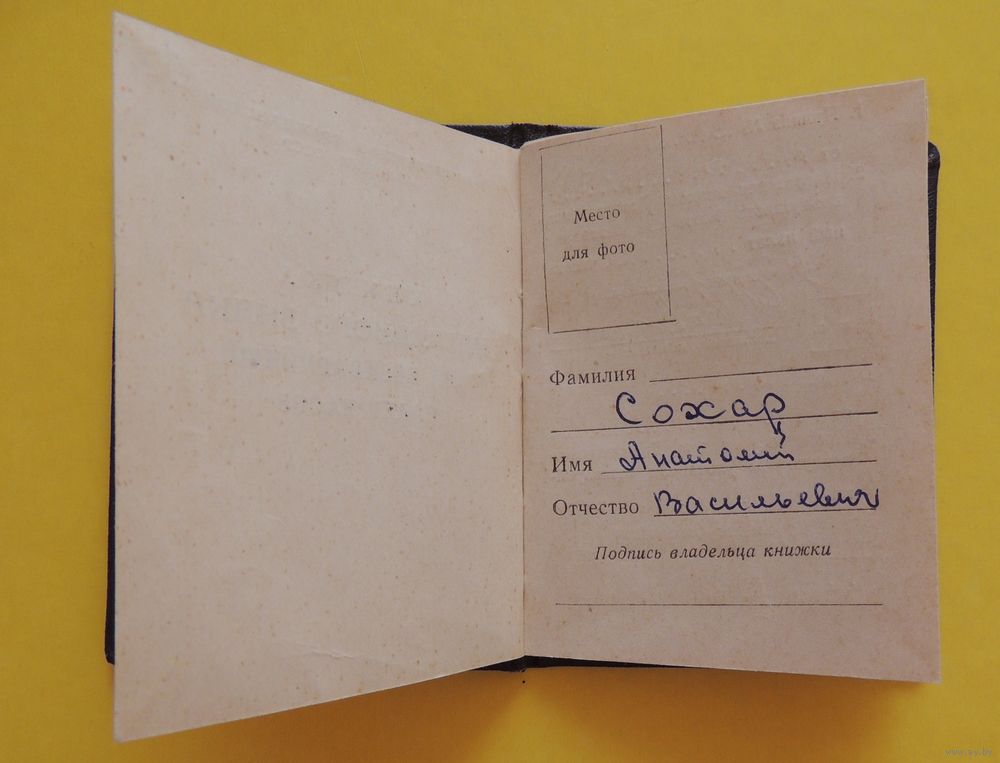 Место
для фото
Фамилия
Сохар
Имя Анатолий
Отчество Васильевич
Подпись владельца книжки
www.ay.by